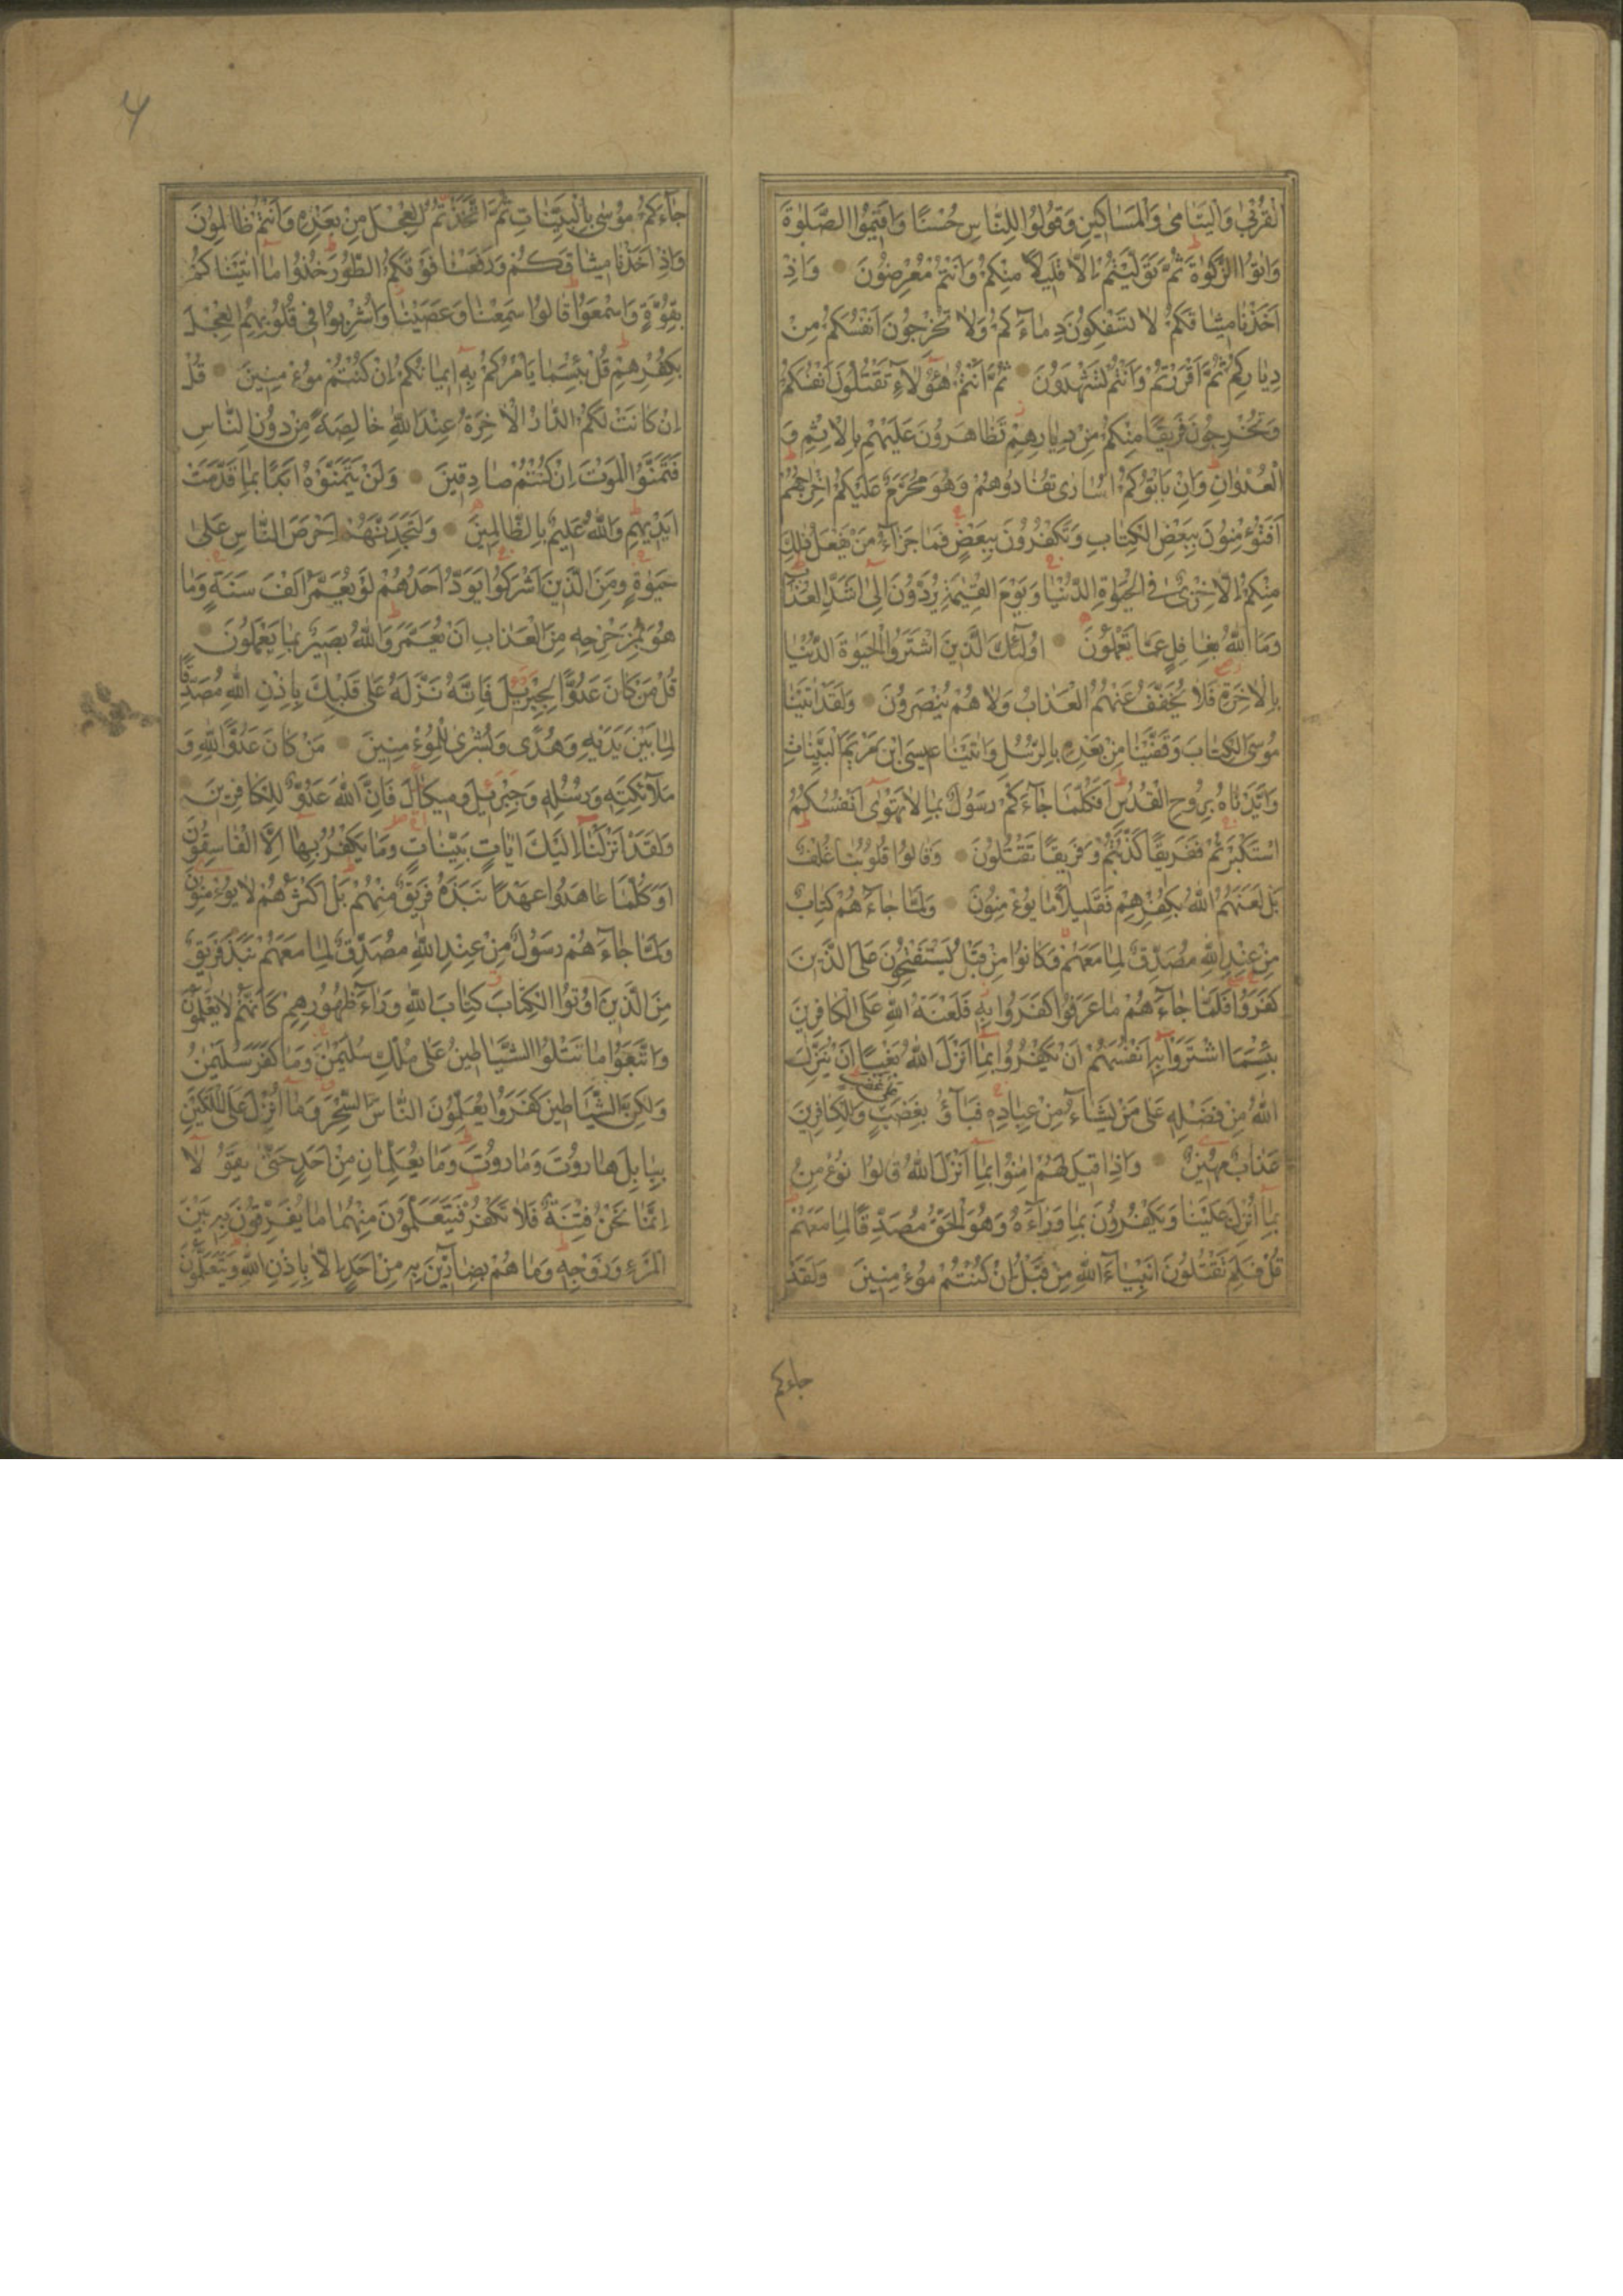 الْقُرْبٰى وَالْيَتَامٰى وَالْمَسَاكِينِ وَقُولُوا لِلنَّاسِ حُسْنًا وَاَقِيمُوا الصَّلٰوةَ
وَاٰتُوا الزَّكٰوةَ ثُمَّ تَوَلَّيْتُمْ اِلَّا قَلِيلًا مِنْكُمْ وَاَنْتُمْ مُعْرِضُونَ وَاِذْ
اَخَذْنَا مِيثَاقَكُمْ لَا تَسْفِكُونَ دِمَاءَكُمْ وَلَا تُخْرِجُونَ اَنْفُسَكُمْ مِنْ
دِيَارِكُمْ ثُمَّ اَقْرَرْتُمْ وَاَنْتُمْ تَشْهَدُونَ ثُمَّ اَنْتُمْ هٰؤُلَاءِ تَقْتُلُونَ اَنْفُسَكُمْ
وَتُخْرِجُونَ فَرِيقًا مِنْكُمْ مِنْ دِيَارِهِمْ تَظَاهَرُونَ عَلَيْهِمْ بِالْاِثْمِ وَ
الْعُدْوَانِ وَاِنْ يَاْتُوكُمْ اُسَارٰى تُفَادُوهُمْ وَهُوَ مُحَرَّمٌ عَلَيْكُمْ اِخْرَاجُهُمْ
اَفَتُؤْمِنُونَ بِبَعْضِ الْكِتَابِ وَتَكْفُرُونَ بِبَعْضٍ فَمَا جَزَاءُ مَنْ يَفْعَلُ ذٰلِكَ
مِنْكُمْ اِلَّا خِزْىٌ فِى الْحَيٰوةِ الدُّنْيَا وَيَوْمَ الْقِيٰمَةِ يُرَدُّونَ اِلٰى اَشَدِّ الْعَذَابِ
وَمَا اللّٰهُ بِغَافِلٍ عَمَّا تَعْمَلُونَ اُولٰئِكَ الَّذِينَ اشْتَرَوُا الْحَيٰوةَ الدُّنْيَا
بِالْاٰخِرَةِ فَلَا يُخَفَّفُ عَنْهُمُ الْعَذَابُ وَلَا هُمْ يُنْصَرُونَ وَلَقَدْ اٰتَيْنَا
مُوسَى الْكِتَابَ وَقَفَّيْنَا مِنْ بَعْدِهِ بِالرُّسُلِ وَاٰتَيْنَا عِيسَى ابْنَ مَرْيَمَ الْبَيِّنَاتِ
وَاَيَّدْنَاهُ بِرُوحِ الْقُدُسِ اَفَكُلَّمَا جَاءَكُمْ رَسُولٌ بِمَا لَا تَهْوٰى اَنْفُسُكُمُ
اسْتَكْبَرْتُمْ فَفَرِيقًا كَذَّبْتُمْ وَفَرِيقًا تَقْتُلُونَ وَقَالُوا قُلُوبُنَا غُلْفٌ
بَلْ لَعَنَهُمُ اللّٰهُ بِكُفْرِهِمْ فَقَلِيلًا مَا يُؤْمِنُونَ وَلَمَّا جَاءَهُمْ كِتَابٌ
مِنْ عِنْدِ اللّٰهِ مُصَدِّقٌ لِمَا مَعَهُمْ وَكَانُوا مِنْ قَبْلُ يَسْتَفْتِحُونَ عَلَى الَّذِينَ
كَفَرُوا فَلَمَّا جَاءَهُمْ مَا عَرَفُوا كَفَرُوا بِهِ فَلَعْنَةُ اللّٰهِ عَلَى الْكَافِرِينَ
بِئْسَمَا اشْتَرَوْا بِهِ اَنْفُسَهُمْ اَنْ يَكْفُرُوا بِمَا اَنْزَلَ اللّٰهُ بَغْيًا اَنْ يُنَزِّلَ
اللّٰهُ مِنْ فَضْلِهِ عَلٰى مَنْ يَشَاءُ مِنْ عِبَادِهِ فَبَاؤُ بِغَضَبٍ عَلٰى غَضَبٍ وَلِلْكَافِرِينَ
عَذَابٌ مُهِينٌ وَاِذَا قِيلَ لَهُمْ اٰمِنُوا بِمَا اَنْزَلَ اللّٰهُ قَالُوا نُؤْمِنُ
بِمَا اُنْزِلَ عَلَيْنَا وَيَكْفُرُونَ بِمَا وَرَاءَهُ وَهُوَ الْحَقُّ مُصَدِّقًا لِمَا مَعَهُمْ
قُلْ فَلِمَ تَقْتُلُونَ اَنْبِيَاءَ اللّٰهِ مِنْ قَبْلُ اِنْ كُنْتُمْ مُؤْمِنِينَ وَلَقَدْ
جاءكم
٤
جَاءَكُمْ مُوسٰى بِالْبَيِّنَاتِ ثُمَّ اتَّخَذْتُمُ الْعِجْلَ مِنْ بَعْدِهِ وَاَنْتُمْ ظَالِمُونَ
وَاِذْ اَخَذْنَا مِيثَاقَكُمْ وَرَفَعْنَا فَوْقَكُمُ الطُّورَ خُذُوا مَا اٰتَيْنَاكُمْ
بِقُوَّةٍ وَاسْمَعُوا قَالُوا سَمِعْنَا وَعَصَيْنَا وَاُشْرِبُوا فِى قُلُوبِهِمُ الْعِجْلَ
بِكُفْرِهِمْ قُلْ بِئْسَمَا يَاْمُرُكُمْ بِهِ اِيمَانُكُمْ اِنْ كُنْتُمْ مُؤْمِنِينَ قُلْ
اِنْ كَانَتْ لَكُمُ الدَّارُ الْاٰخِرَةُ عِنْدَ اللّٰهِ خَالِصَةً مِنْ دُونِ النَّاسِ
فَتَمَنَّوُا الْمَوْتَ اِنْ كُنْتُمْ صَادِقِينَ وَلَنْ يَتَمَنَّوْهُ اَبَدًا بِمَا قَدَّمَتْ
اَيْدِيهِمْ وَاللّٰهُ عَلِيمٌ بِالظَّالِمِينَ وَلَتَجِدَنَّهُمْ اَحْرَصَ النَّاسِ عَلٰى
حَيٰوةٍ وَمِنَ الَّذِينَ اَشْرَكُوا يَوَدُّ اَحَدُهُمْ لَوْ يُعَمَّرُ اَلْفَ سَنَةٍ وَمَا
هُوَ بِمُزَحْزِحِهِ مِنَ الْعَذَابِ اَنْ يُعَمَّرَ وَاللّٰهُ بَصِيرٌ بِمَا يَعْمَلُونَ
قُلْ مَنْ كَانَ عَدُوًّا لِجِبْرِيلَ فَاِنَّهُ نَزَّلَهُ عَلٰى قَلْبِكَ بِاِذْنِ اللّٰهِ مُصَدِّقًا
لِمَا بَيْنَ يَدَيْهِ وَهُدًى وَبُشْرٰى لِلْمُؤْمِنِينَ مَنْ كَانَ عَدُوًّا لِلّٰهِ وَ
مَلٰئِكَتِهِ وَرُسُلِهِ وَجِبْرِيلَ وَمِيكَالَ فَاِنَّ اللّٰهَ عَدُوٌّ لِلْكَافِرِينَ
وَلَقَدْ اَنْزَلْنَا اِلَيْكَ اٰيَاتٍ بَيِّنَاتٍ وَمَا يَكْفُرُ بِهَا اِلَّا الْفَاسِقُونَ
اَوَكُلَّمَا عَاهَدُوا عَهْدًا نَبَذَهُ فَرِيقٌ مِنْهُمْ بَلْ اَكْثَرُهُمْ لَا يُؤْمِنُونَ
وَلَمَّا جَاءَهُمْ رَسُولٌ مِنْ عِنْدِ اللّٰهِ مُصَدِّقٌ لِمَا مَعَهُمْ نَبَذَ فَرِيقٌ
مِنَ الَّذِينَ اُوتُوا الْكِتَابَ كِتَابَ اللّٰهِ وَرَاءَ ظُهُورِهِمْ كَاَنَّهُمْ لَا يَعْلَمُونَ
وَاتَّبَعُوا مَا تَتْلُوا الشَّيَاطِينُ عَلٰى مُلْكِ سُلَيْمٰنَ وَمَا كَفَرَ سُلَيْمٰنُ
وَلٰكِنَّ الشَّيَاطِينَ كَفَرُوا يُعَلِّمُونَ النَّاسَ السِّحْرَ وَمَا اُنْزِلَ عَلَى الْمَلَكَيْنِ
بِبَابِلَ هَارُوتَ وَمَارُوتَ وَمَا يُعَلِّمَانِ مِنْ اَحَدٍ حَتّٰى يَقُولَا
اِنَّمَا نَحْنُ فِتْنَةٌ فَلَا تَكْفُرْ فَيَتَعَلَّمُونَ مِنْهُمَا مَا يُفَرِّقُونَ بِهِ بَيْنَ
الْمَرْءِ وَزَوْجِهِ وَمَا هُمْ بِضَارِّينَ بِهِ مِنْ اَحَدٍ اِلَّا بِاِذْنِ اللّٰهِ وَيَتَعَلَّمُونَ